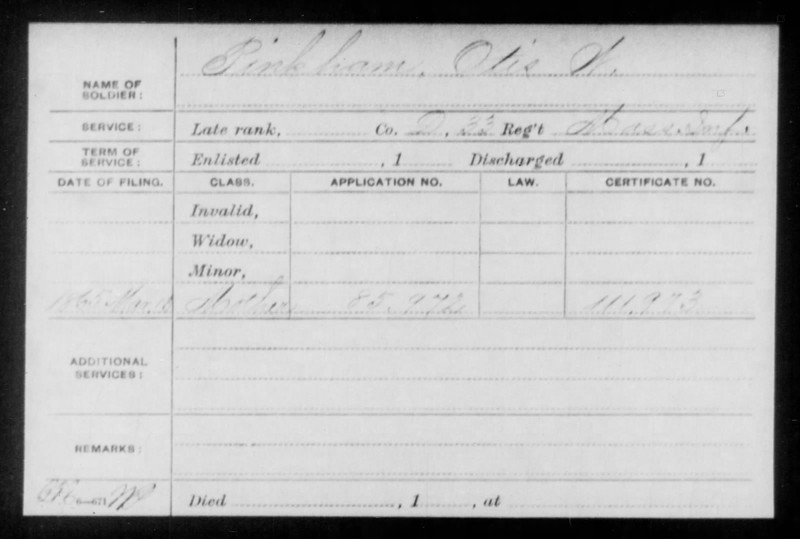 NAME OF SOLDIER: Pinkham, Otis W.
SERVICE: Late rank, Co. D, 33 Reg't Mass. Inf.
TERM OF SERVICE: Enlisted , 1 Discharged , 1
DATE OF FILING. CLASS. APPLICATION NO. LAW. CERTIFICATE NO.
Invalid,
Widow,
Minor,
1865 Mar. Mother 85.972 111.973
ADDITIONAL SERVICES:
REMARKS:
Died , 1 , at